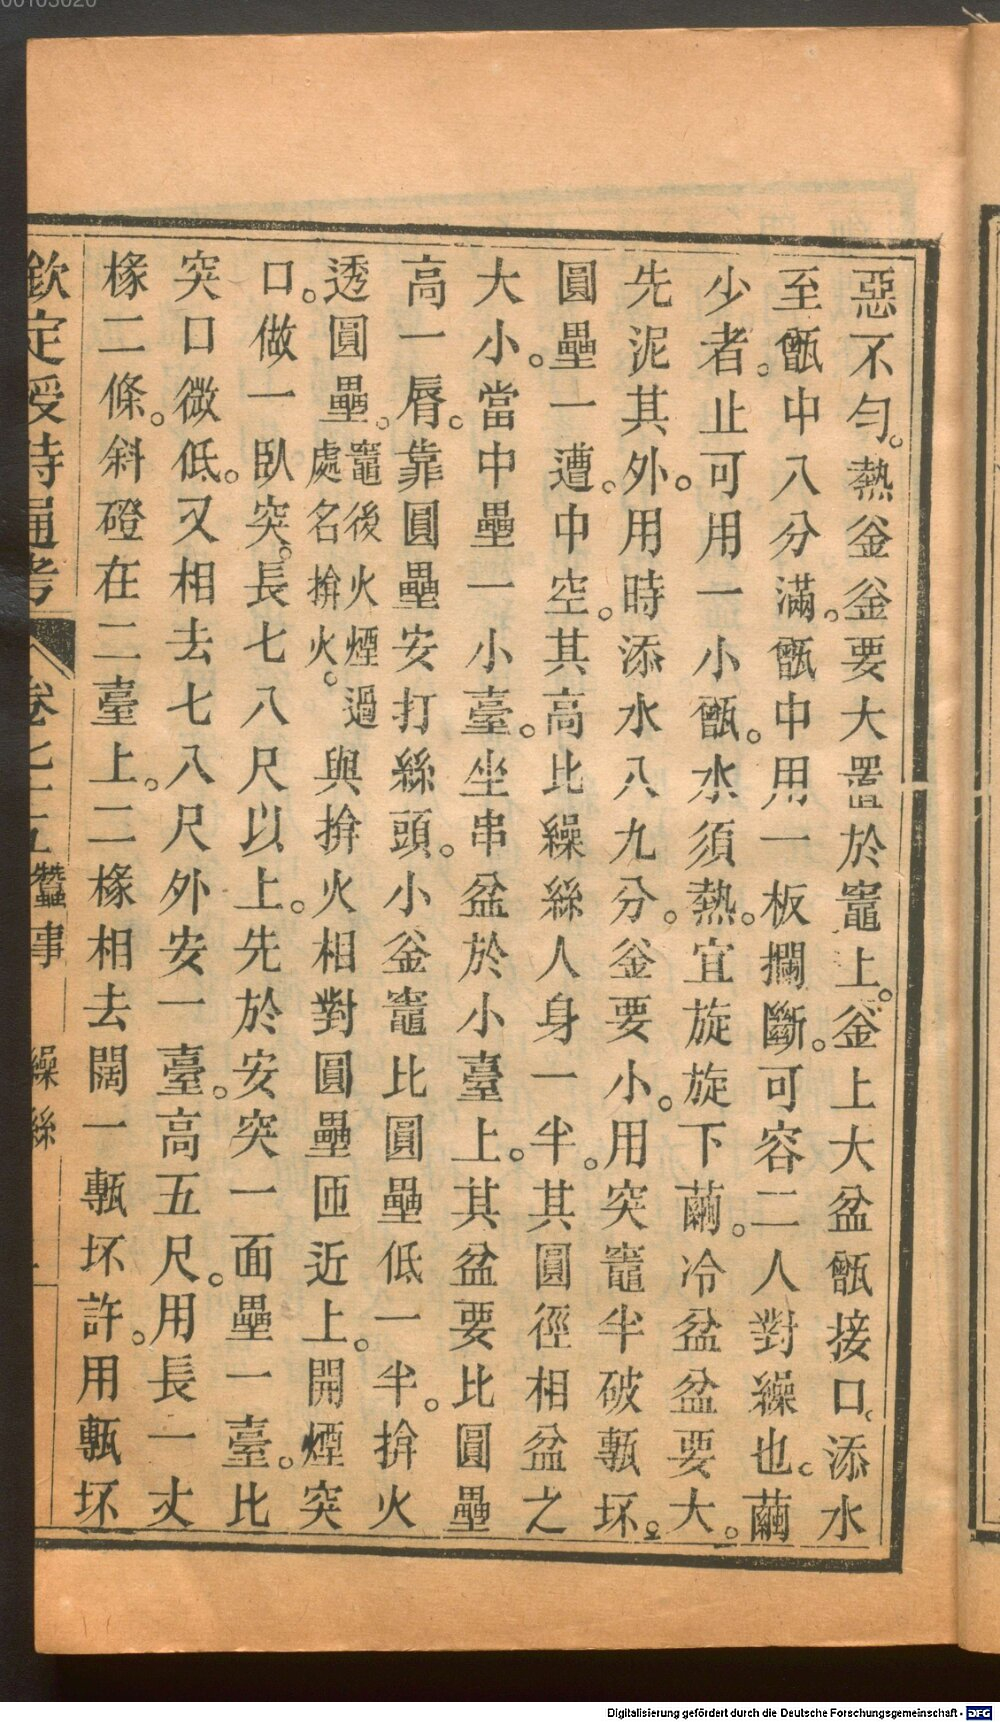 惡不勻。熱釡釡要大置於竈上。釡上大盆甑接口。添水
至甑中八分滿。甑中用一板攔斷。可容二人對繰也。繭
少者。止可用一小甑。水須熱。宜旋旋下繭。冷盆盆要大。
先泥其外。用時添水八九分。釡要小。用突竈半破甎坏。
圓壘一遭。中空。其高比繰絲人身一半。其圓徑相盆之
大小。當中壘一小臺。坐串盆於小臺上。其盆要比圓壘
高一脣。靠圓壘安打絲頭。小釡竈比圓壘低一半。揜火
透圓壘。竈後火煙過處名揜火。與揜火相對圓壘匝近上。開煙突
口。做一臥突。長七八尺以上。先於安突一面壘一臺。比
突口微低。又相去七八尺外安一臺。高五尺。用長一丈
椽二條。斜磴在二臺上。二椽相去闊一甎坏許。用甎坏
欽定授時通考 卷七十五 蠶事 繰絲
Digitalisierung gefördert durch die Deutsche Forschungsgemeinschaft - DFG